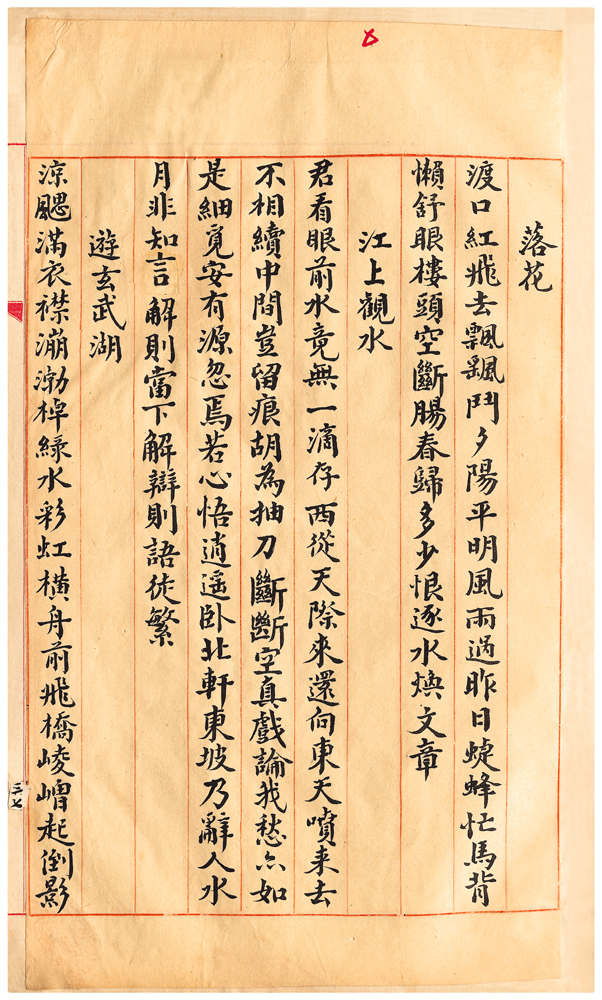 落花
渡口紅飛去飄飄鬥夕陽平明風雨過昨日蜨蜂忙馬背
懶舒眼樓頭空斷腸春歸多少恨逐水煥文章
江上觀水
君看眼前水竟無一滴存西從天際來還向東天噴来去
不相續中間豈留痕胡為抽刀斷斷空真戲論我愁亦如
是細覓安有源忽焉若心悟逍遥卧北軒東坡乃辭人水
月非知言解則當下解辯則語徒繁
遊玄武湖
涼颸滿衣襟漰渤棹綠水彩虹橫舟前飛橋崚嶒起倒影
三七